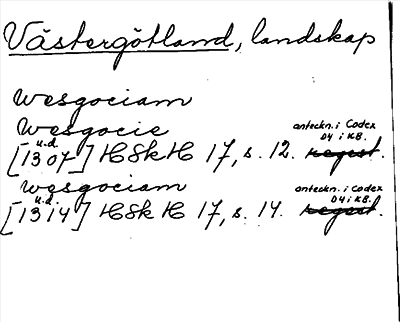 Västergötland, landskap
Wesgociam
Wesgocie
u.d.
anteckn. i Codex
D4 i KB.
[1307] HSkH 17, s. 12. regest.
Wesgociam
u.d.
anteckn. i Codex
D4 i KB.
[1314] HSkH 17, s. 14. regest.